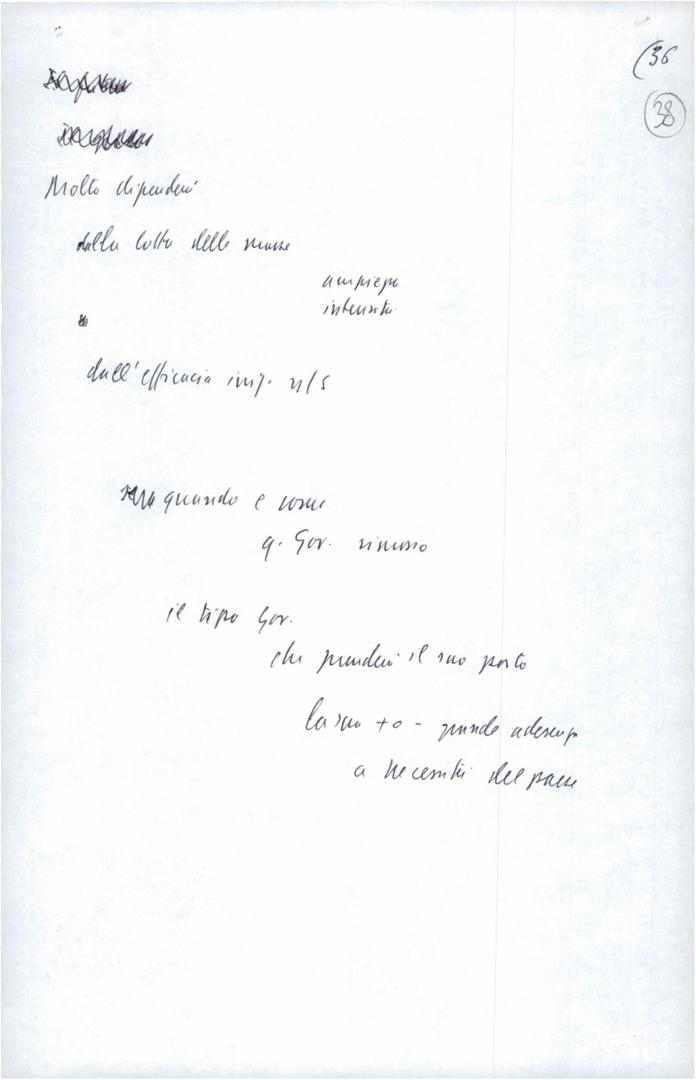 (36
38
Molto dipenderà
dalla lotta delle masse
ampiezza
intensità
dall'efficacia iniz. n/s
quando e come
q. Gov. rimosso
il tipo Gov.
che prenderà il suo posto
la sua + o - grande
a necessità del paese